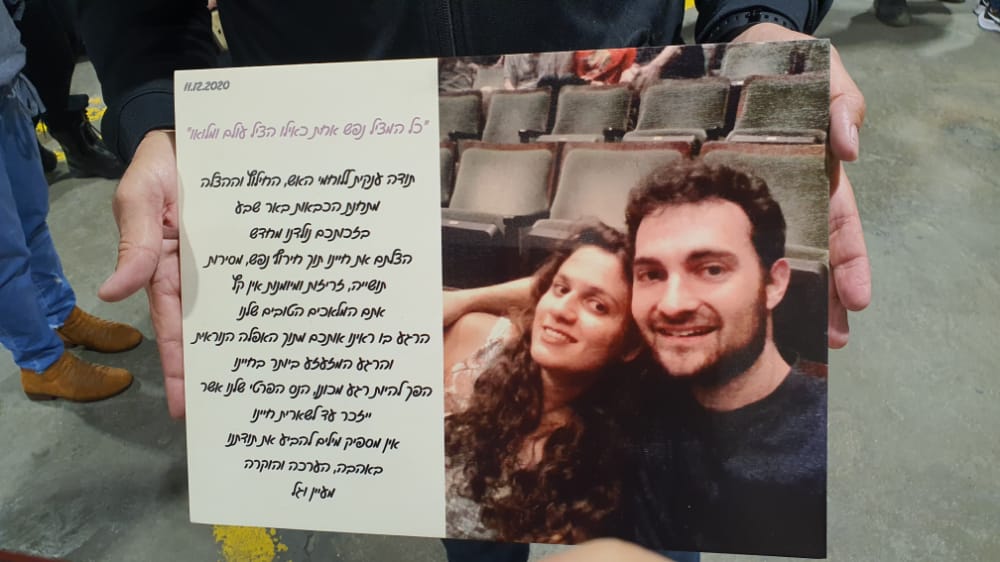 11.12.2020
"כל המציל נפש אחת כאילו הציל עולם ומלואו"
תודה ענקית ללוחמי האש, החילוץ וההצלה
מתחנת הכבאות באר שבע
בזכותכם נולדנו מחדש
הצלתם את חיינו תוך חירוף נפש, מסירות
תושייה, זריזות ומיומנות אין קץ
אתם המלאכים הטובים שלנו
הרגע בו ראינו אתכם מתוך האפלה הנוראית
והרגע המזעזע ביותר בחיינו
הפך להיות רגע מכונן, הנס הפרטי שלנו אשר
ייזכר עד לשארית חיינו
אין מספיק מילים להביע את תודתנו
באהבה, הערכה והוקרה
מעיין וגל